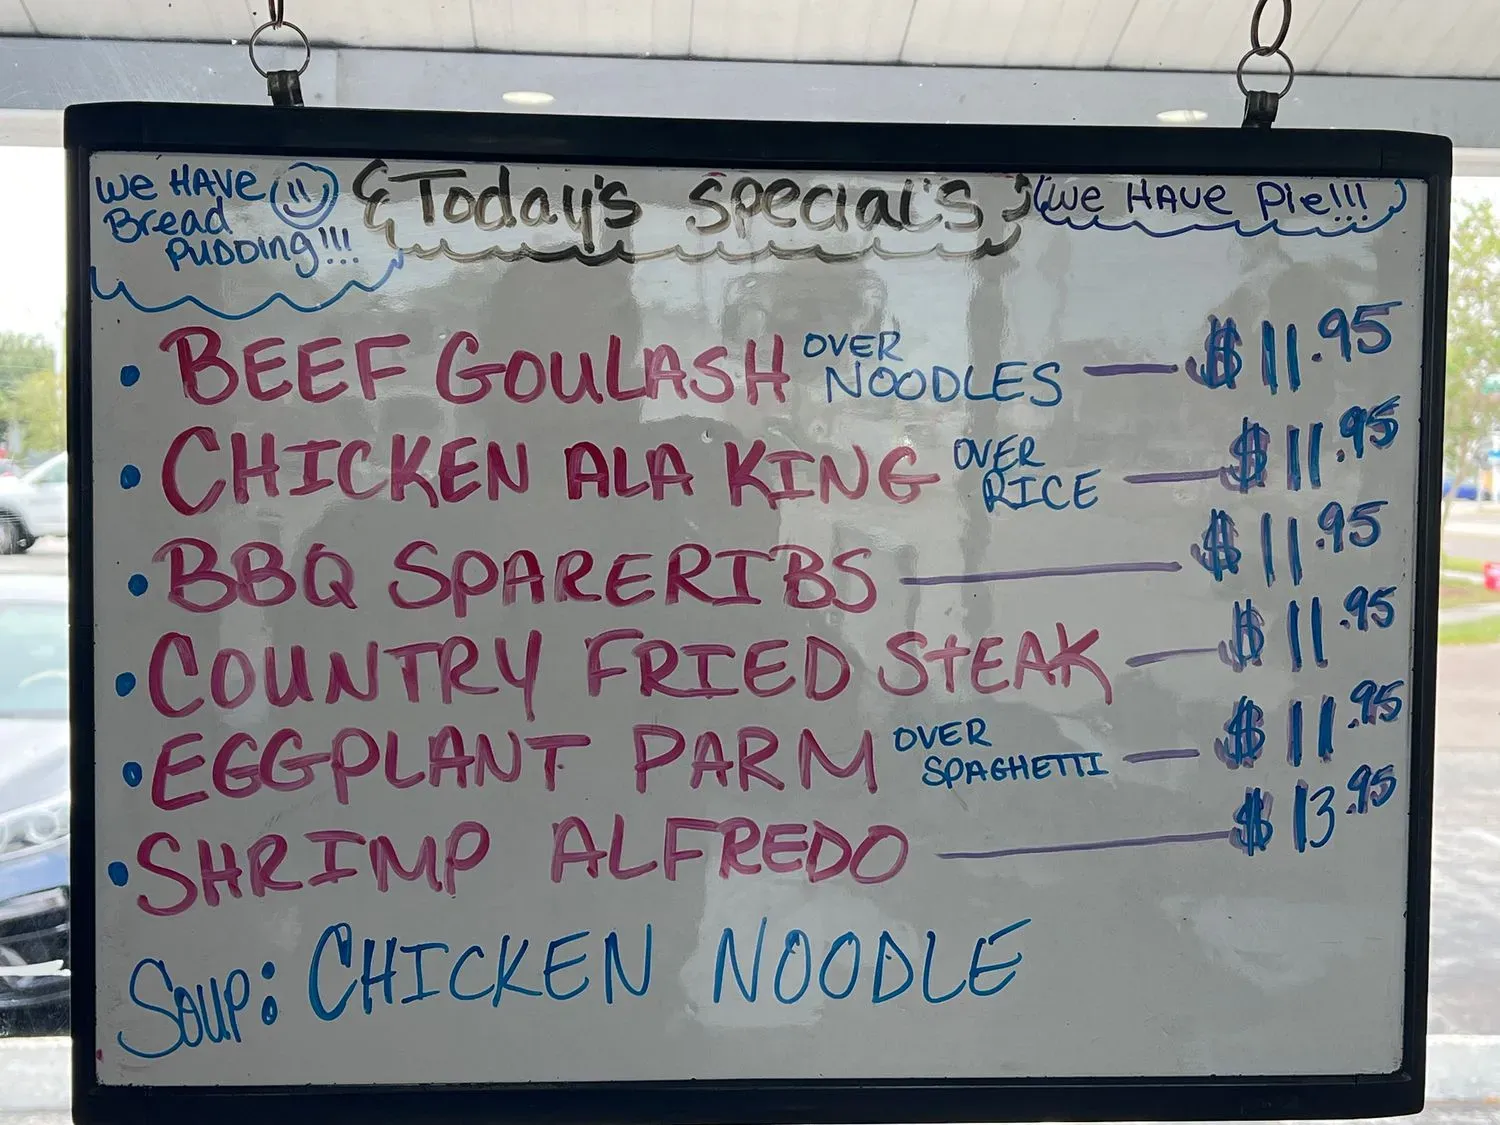 We HAVE
Bread
PUDDING!!!
Today's special's
We HAVE PIe!!!
• BEEF GOULASH OVER NOODLES — $11.95
• CHICKEN ALA KING OVER RICE — $11.95
• BBQ SPARERIBS — $11.95
• COUNTRY FRIED STEAK — $11.95
• EGGPLANT PARM OVER SPAGHETTI — $11.95
• SHRIMP ALFREDO — $13.95
Soup: CHICKEN NOODLE